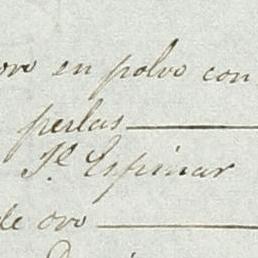 oro en polvo con
perlas
Jᵉ Espinar
de oro